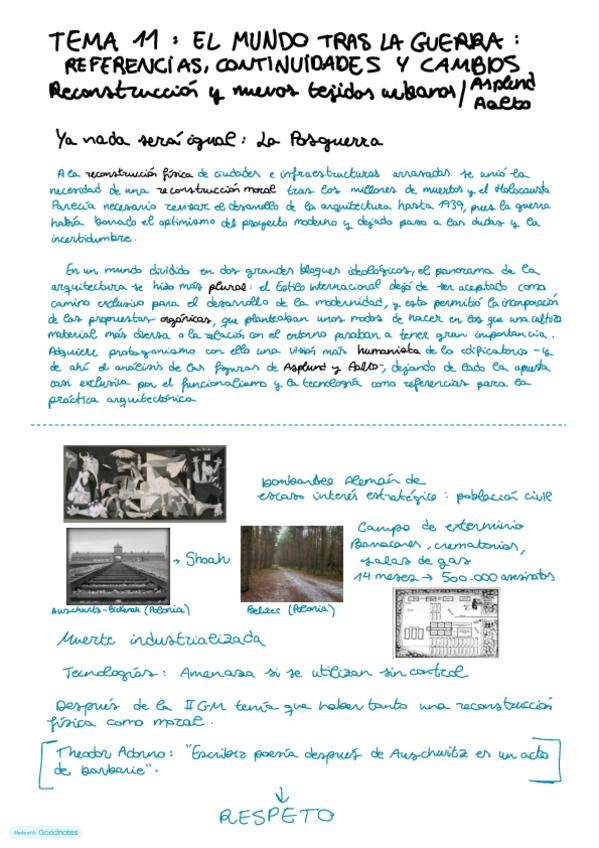 TEMA 11 : EL MUNDO TRAS LA GUERRA :
REFERENCIAS, CONTINUIDADES Y CAMBIOS
Reconstrucción y nuevos tejidos urbanos / Asplund
Aalto
Ya nada será igual : La Posguerra
A la reconstrucción física de ciudades e infraestructuras arrasadas se unió la
necesidad de una reconstrucción moral tras los millones de muertos y el Holocausto
Parecía necesario revisar el desarrollo de la arquitectura hasta 1939, pues la guerra
había borrado el optimismo del proyecto moderno y dejado paso a las dudas y la
incertidumbre.
En un mundo dividido en dos grandes bloques ideológicos, el panorama de la
arquitectura se hizo más plural : el Estilo Internacional dejó de ser aceptado como
camino exclusivo para el desarrollo de la modernidad, y esto permitió la incorporación
de las propuestas orgánicas, que planteaban unos modos de hacer en los que una cultura
material más diversa o la relación con el entorno pasaban a tener gran importancia.
Adquiere protagonismo con ello una visión más humanista de lo edificatorio - y
de ahí el análisis de las figuras de Asplund y Aalto -, dejando de lado la apuesta
casi exclusiva por el funcionalismo y la tecnología como referencias para la
práctica arquitectónica
bombardeo Alemán de
escaso interés estratégico : población civil
→ Shoah
Campo de exterminio
Barracones, crematorios,
salas de gas
14 meses → 500.000 asesinatos
Auschwitz-Birkenau (Polonia)
Belzec (Polonia)
Muerte industrializada
Tecnologías : Amenaza si se utilizan sin control
Después de la II GM tenía que haber tanto una reconstrucción
física como moral.
Theodor Adorno : "Escribir poesía después de Auschwitz es un acto
de barbarie".
↓
RESPETO
Made with Goodnotes